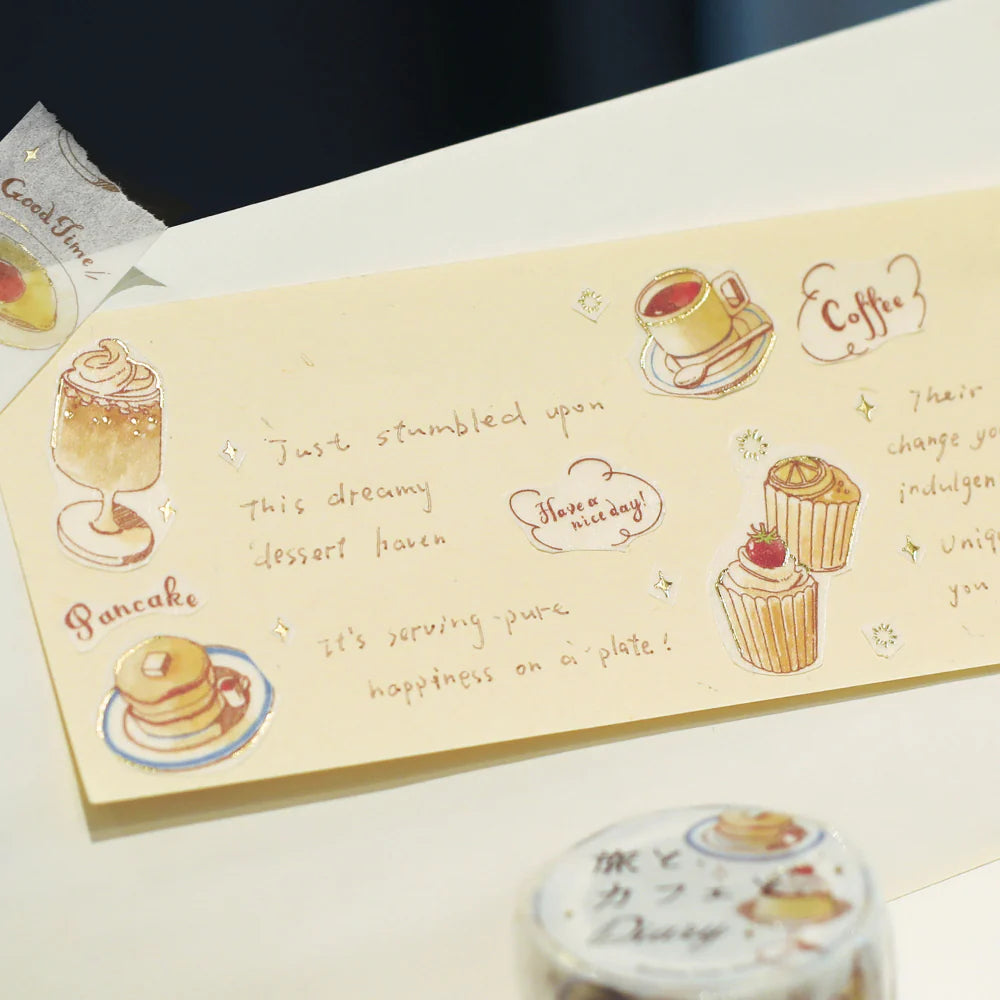 Good Time!
Coffee
Just stumbled upon
This dreamy
dessert haven
Have a
nice day!
Pancake
It's serving pure
happiness on a plate!
Their
change you
indulgen
uniqu
you
旅と
カフェと
Diary